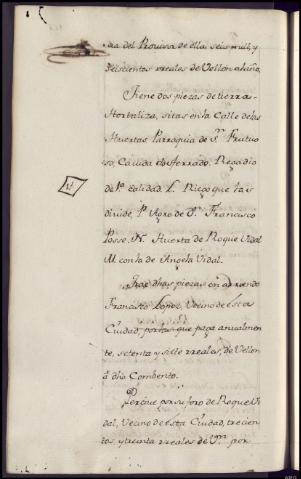 seiscientos rreales de Vellon al año.
Tiene dos piezas de tierra
Hortaliza, sitas en la Calle de las
Huertas Parroquia de Sn. Frutuo
so, Cavida dosferrado. Regadio
de 1a. calidad. L. Riego que las
divide, P. Agro de Dn. Francisco
Posse, N. Huerta de Roque Vidal
M. con la de Angela Vidal.
dhas piezas en arriendo
Francisco Lopez Vecino de esta
Ciudad, por las que paga anualmen
te, setenta y siete rreales, de Vellon
á dho Combento.
Percive por su foro de Roque Vi
dal, Vecino de esta Ciudad, trecien
tos, y treinta rreales de Vn. por